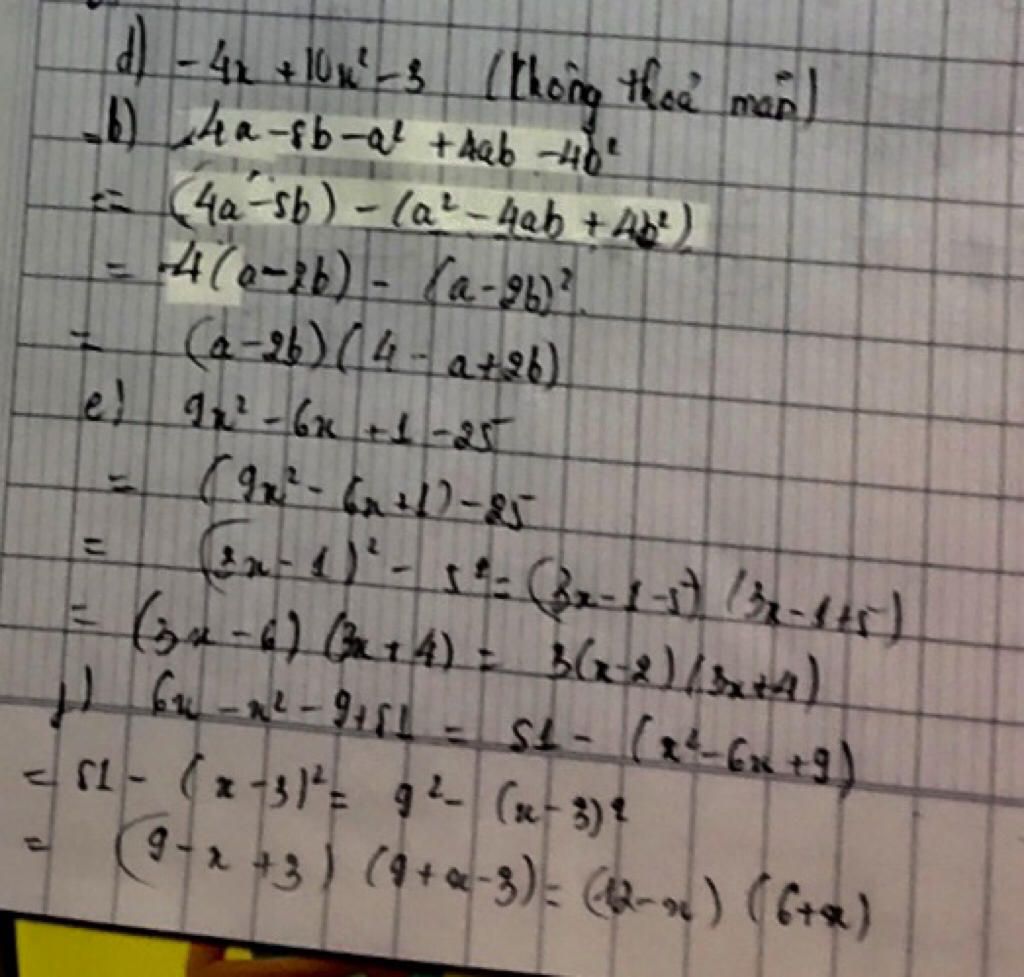 d) -4x + 10x² - 3 (không thoả mãn)
b) 4a - 8b - a² + 4ab - 4b²
= (4a - 8b) - (a² - 4ab + 4b²)
= 4(a - 2b) - (a - 2b)²
= (a - 2b)(4 - a + 2b)
e) 9x² - 6x + 1 - 25
= (9x² - 6x + 1) - 25
= (3x - 1)² - 5² = (3x - 1 - 5) (3x - 1 + 5)
= (3x - 6) (3x + 4) = 3(x - 2)(3x + 4)
f) 6x - x² - 9 + 81 = 81 - (x² - 6x + 9)
= 81 - (x - 3)² = 9² - (x - 3)²
= (9 - x + 3) (9 + x - 3) = (12 - x) (6 + x)